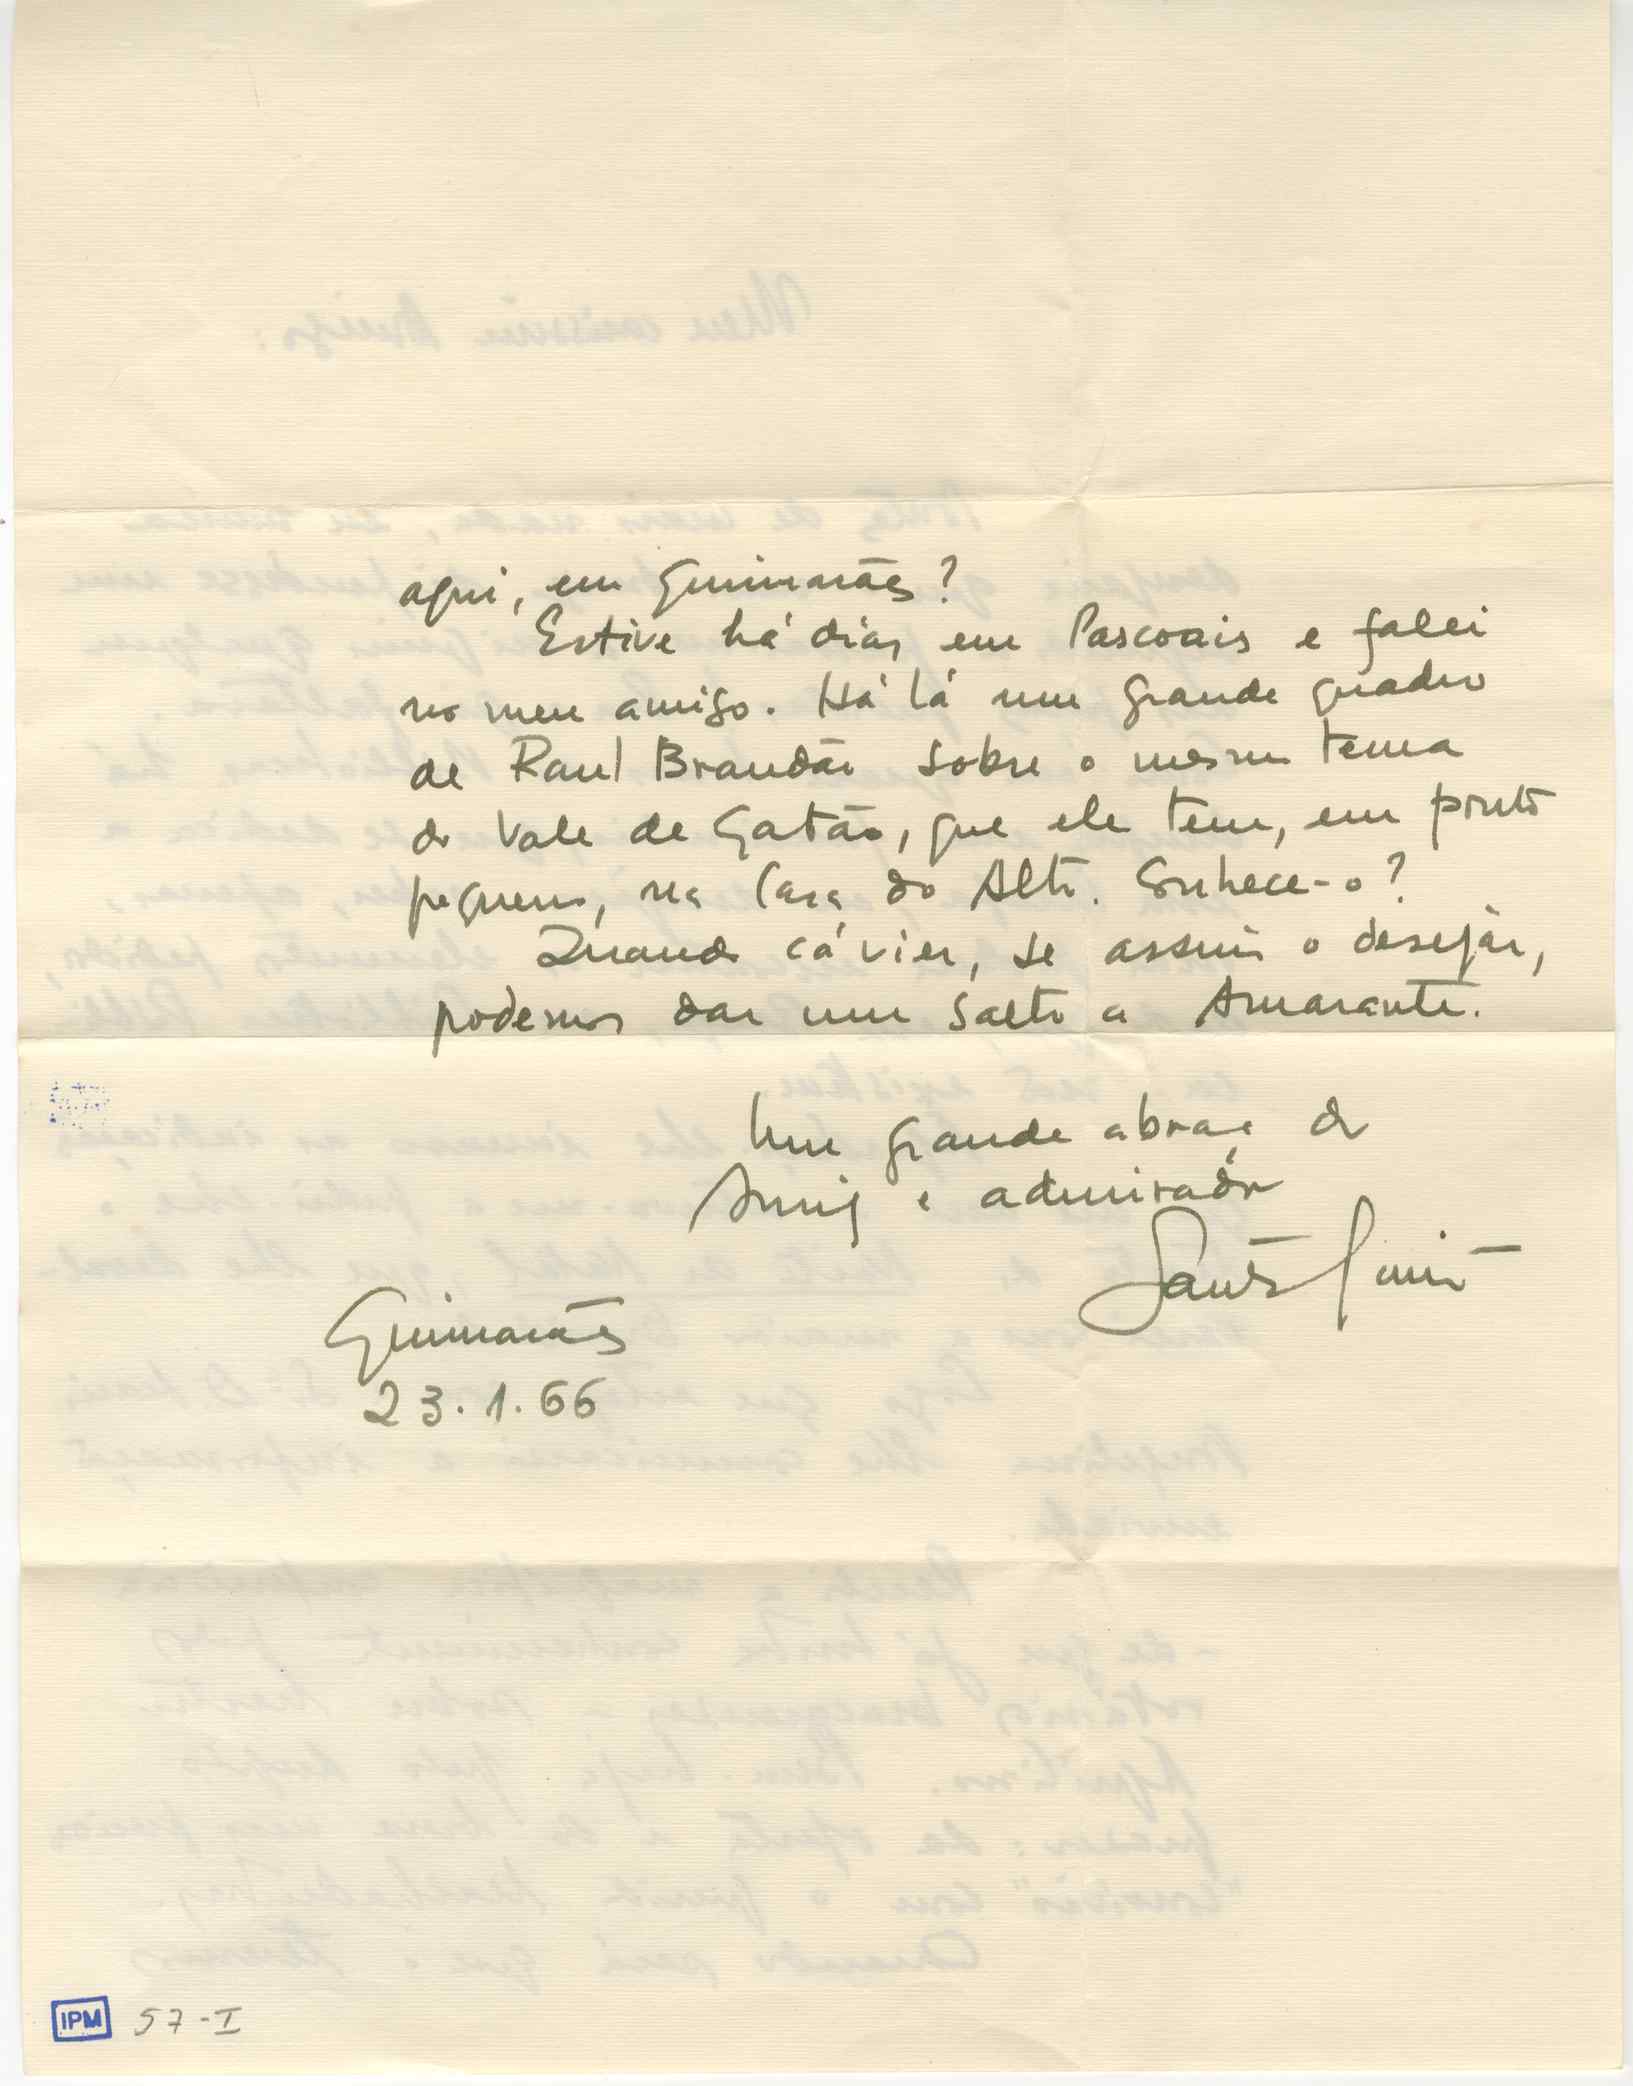 aqui, em Guimarães?
Estive há dias em Pascoais e falei
no meu amigo. Há lá um grande quadro
de Raul Brandão sobre o mesmo tema
do Vale de Gatão, que ele tem, em ponto
pequeno, na Casa do Alto. Conhece-o?
Quando cá vier, se assim o desejar,
podemos dar um salto a Amarante.
Um grande abraço do
Amigo e admirador
Santos Simões
Guimarães
23.1.66
IPM 57-I